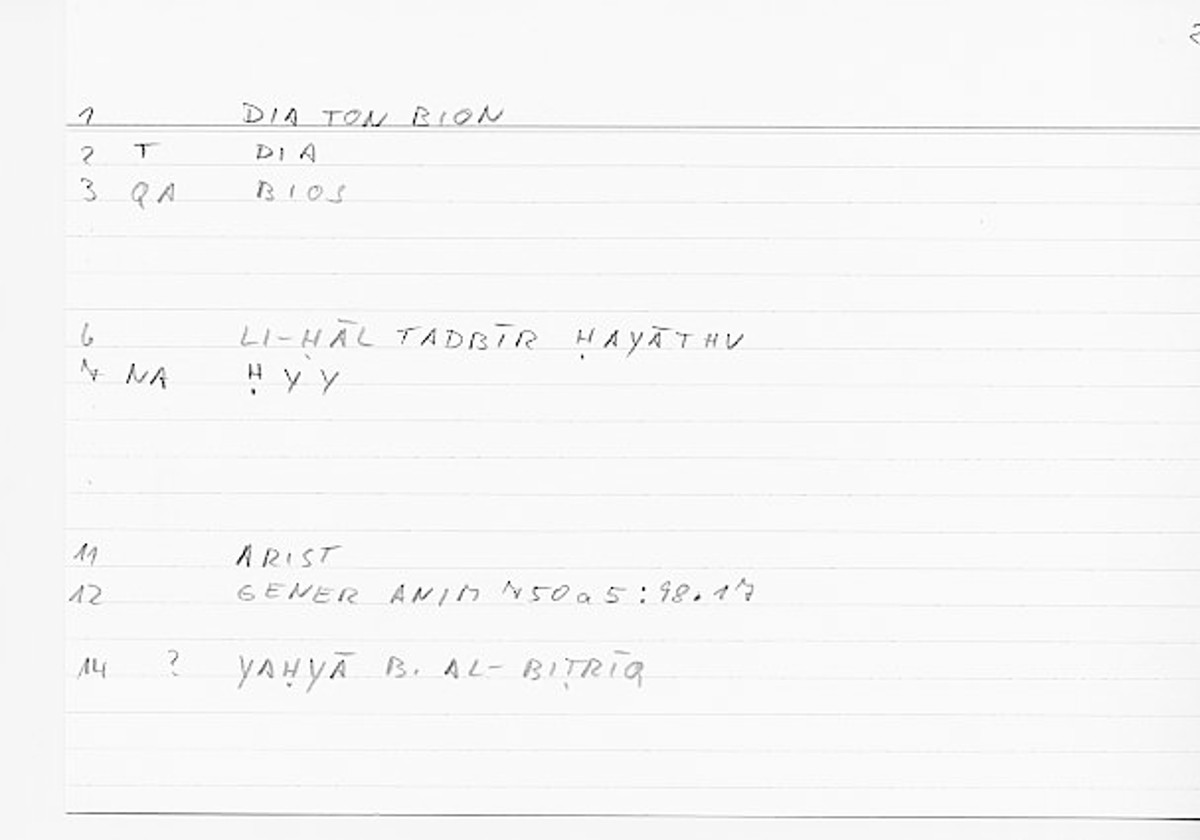 1 DIA TON BION
2 T DIA
3 QA BIOS
6 LI-ḤĀL TADBĪR ḤAYĀTHU
7 NA ḤYY
11 ARIST
12 GENER ANIM 750a5:98.17
14 ? YAḤYĀ B. AL-BIṬRĪQ